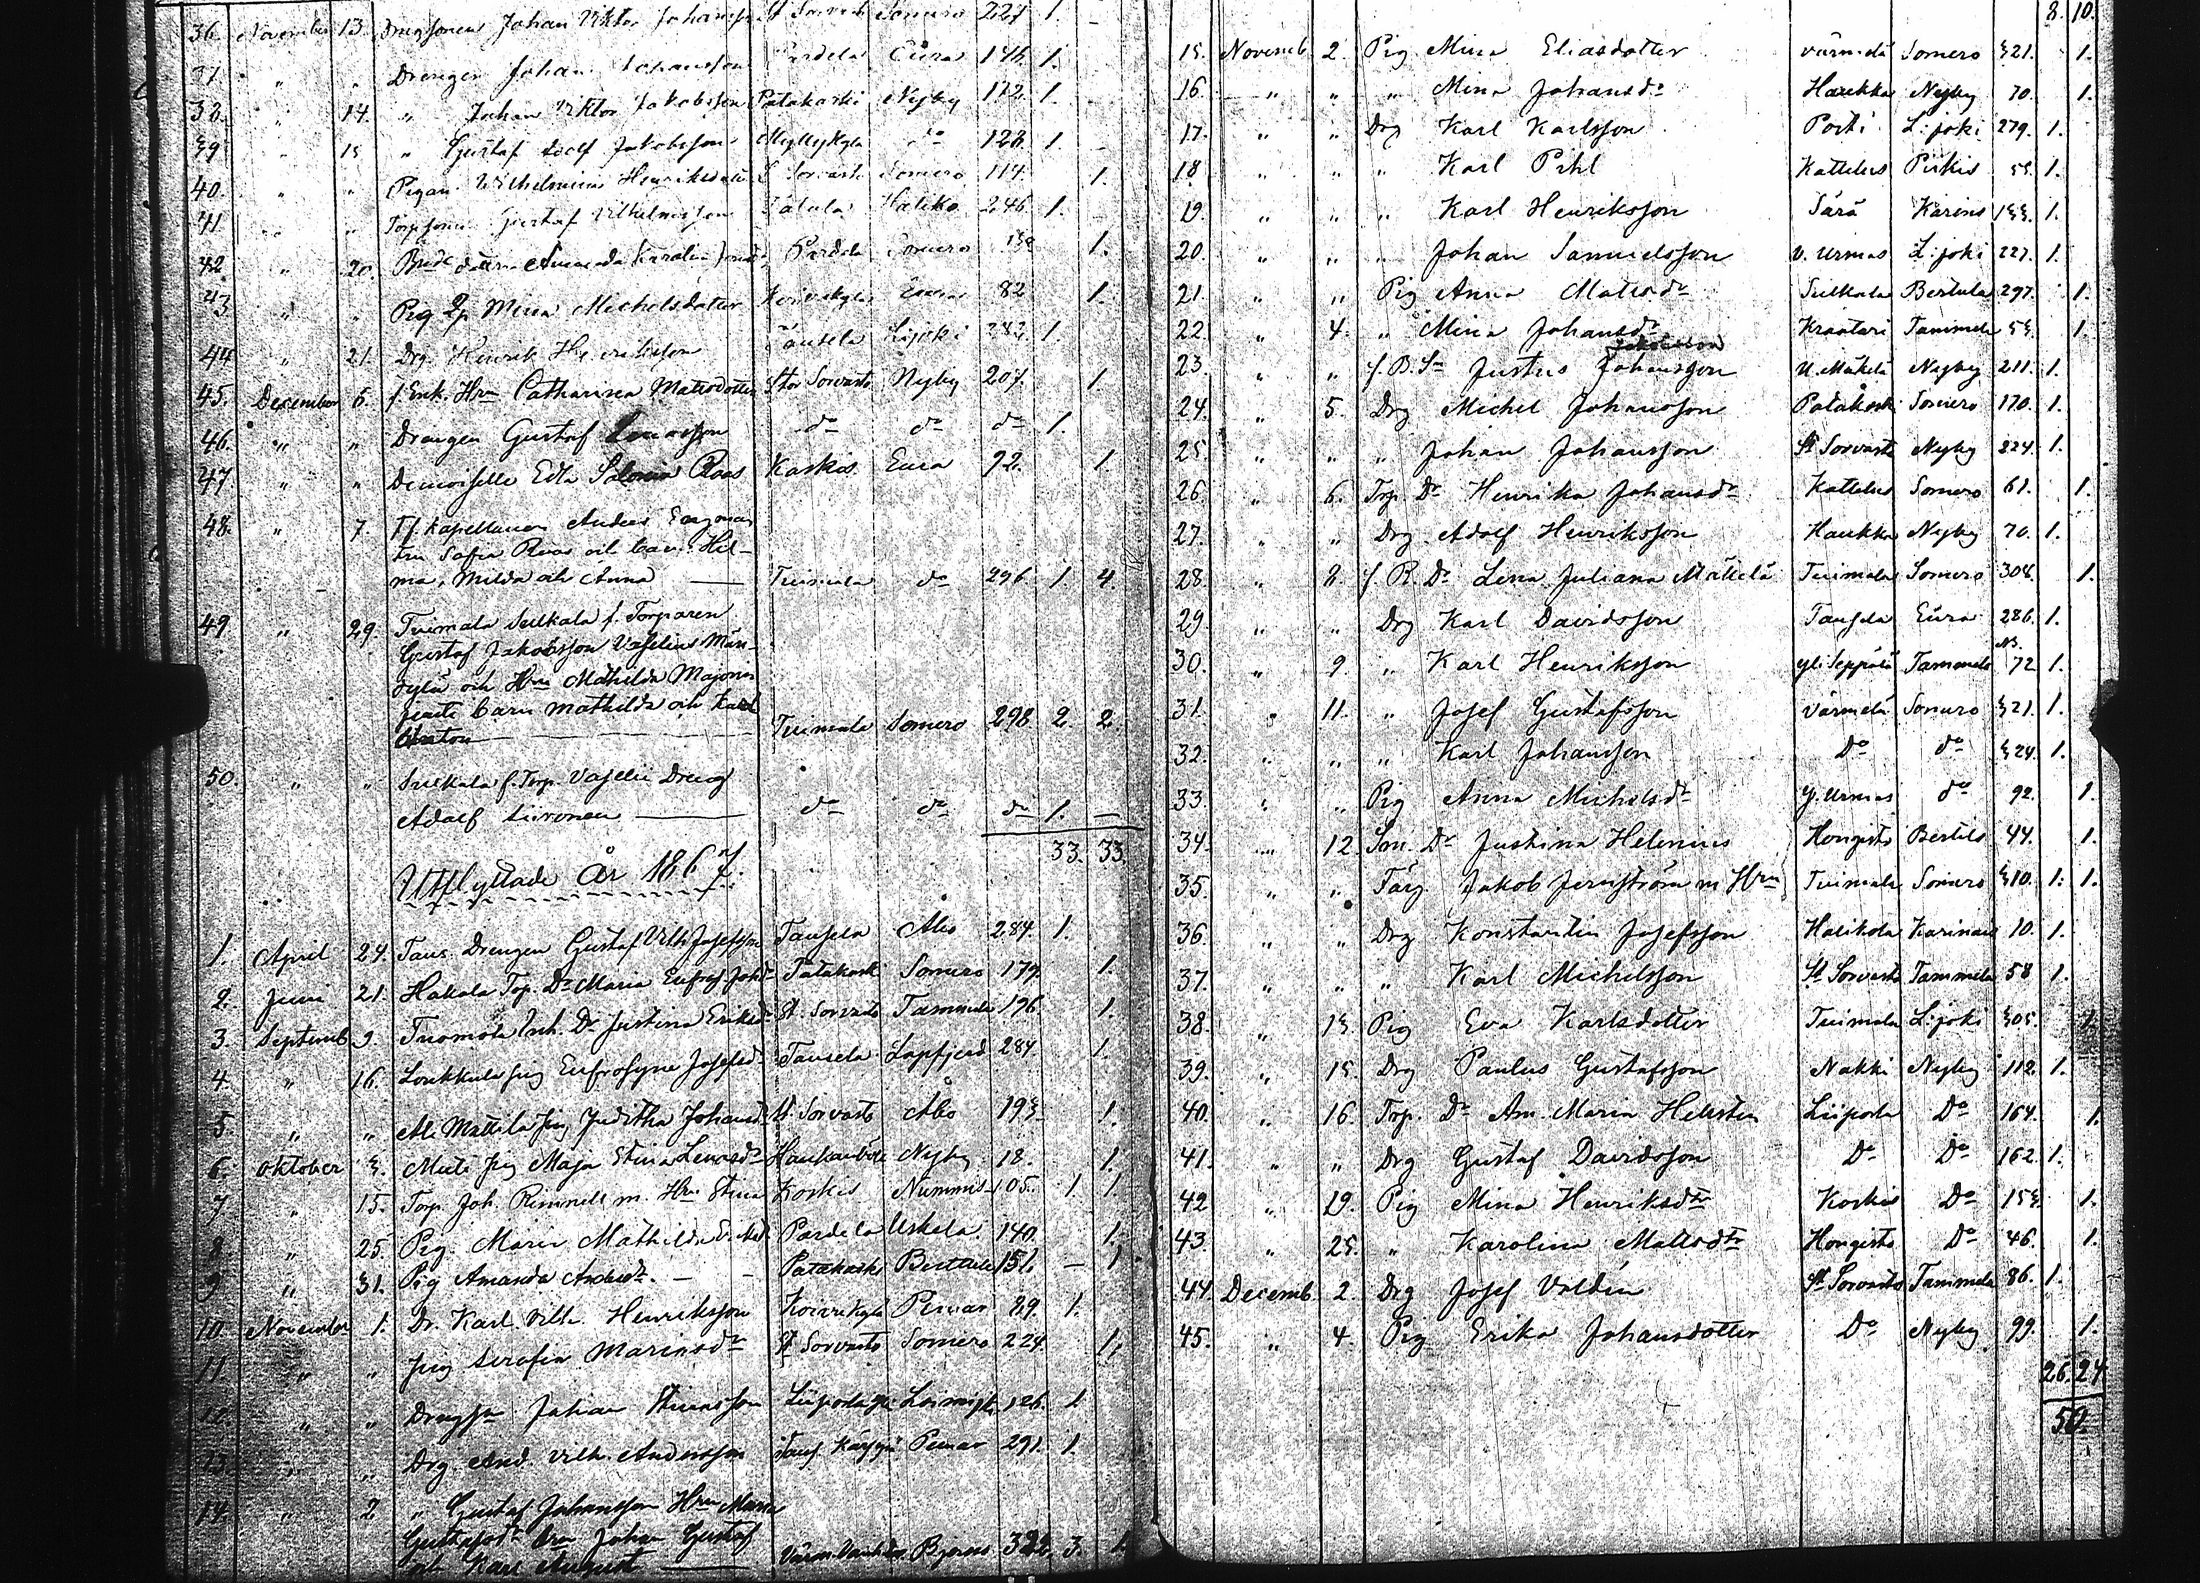 36. November 13. Drengsonen Johan Viktor Johansson St Sorvasto Somero 227 1. –
37. " " Drengen Johan Johansson Pardela Eura 146. 1.
38. " 14. " Johan Viktor Jakobsson Patakoski Nyby 172. 1. –
39 " 15 " Gustaf Adolf Jakobsson Myllykylä do 128. 1 –
40. " " Pigan Wilhelmina Henriksdotter St Sorvasto Somero 114. 1.
41 " " Torpsonen Gustaf Vilhelmsson Halikko 246. 1.
42. " 20. Amanda Karolina Pardela Somero 1.
43 " " Pig Mina Michelsdotter Koivukylä 82 1.
44 " 21. Drg. Henrik Henriksson Tausela Lijoki 282. 1.
45. December 6. f. Enk. Hrn Catharina Matsdotter Stor Sorvasto Nyby 207. 1.
46. " " Drengen Gustaf do do do 1.
47. " " Demoiselle Edla Salomia Roos Koskis Eura 92. 1.
48. " 7. Tf. Kapellanen Anders
fru Sofia Roos och barn Hil-
ma, Milda och Anna — Tuimala do 296 1. 4.
49. " 29. Tuimala Sulkala f. Torparen
Gustaf Jakobsson Vaselius Män-
tylä och Hru Mathilda Majorin
jemte barn Mathilda och Karl
Anton — Tuimala Somero 298 2. 2.
50. " " Sulkala f. Torp. Vaselii Dreng
Adolf Siironen — do do do 1. —
33. 33.
Utflyttade År 1867.
1. April 24. Taus. Drengen Gustaf Vilh. Josefsson Tausela Åbo 284. 1.
2. Juni 21. Hakala Torp. Dr Maria Eufros. Johdr Patakoski Somero 179. 1.
3. Septemb 9. Tuomola Inh. Dr Justina Eriksdr St. Sorvasto Tammela 196. 1.
4. " 16. Loukkula pig Eufrosyne Josefsdr Tausela Lappfjerd 284. 1.
5. " " Al. Mattila pig Juditha Johansdr St. Sorvasto Åbo 193. 1.
6. Oktober 3. pig Maja Stina Nyby 18. 1.
7 " 15. Torp. Joh. Rinnell m. Hru Stina Koskis Nummis 105. 1. 1.
8 " 25. Pig. Maria Mathilda Pardela Uskela. 140. 1.
9 " 31. Pig Amanda Andersdr. – – Patakoski Bertula 151. – 1.
10. November 1. Dr. Karl Vilh. Henriksson Koivukylä Pemar 89. 1.
11 " " Pig Serafia Marinsdr St Sorvasto Somero 224. 1.
12. " " Drengsn Johan Liipola Loimijoki 126. 1
13. " " Drg. And. Vilh. Andersson Taus. Pemar 291. 1.
14. " 2 " Gustaf Johansson Hru Maria
Gustafsdr brn Johan Gustaf
och Karl August — 322. 3. 1.
8. 10.
15. Novemb 2. Pig Mina Eliasdotter Värmelä Somero 321. 1.
16. " " " Mina Johansdr Haukka Nyby 70. 1.
17. " " Drg Karl Karlsson Porti L:joki 279. 1.
18 " " " Karl Pihl Kattelus Pirkis 55. 1.
19. " " " Karl Henriksson Särä Karins 133. 1.
20. " " " Johan Samuelsson v. Urmas L:joki 227. 1.
21. " " Pig Anna Matsdr Sulkala Bertula 297. 1.
22. " 4. " Mina Johansdr Kraatari Tammela 53. 1.
23. " " f. B. Sn Justus Johansson U. Mäkelä Nyby 211. 1.
24. " 5. Drg Michel Johansson Patakoski Somero 170. 1.
25. " " " Johan Johansson St Sorvasto Nyby 224. 1.
26. " 6. Trp. Dr Henrika Johansdr Kattelus Somero 61. 1.
27. " " Drg. Adolf Henriksson Haukka Nyby 70. 1.
28. " 8. f. R. Dr Lena Juliana Mäkelä Tuimala Somero 308. 1.
29. " " Drg Karl Davidsson Tausela Eura 286. 1.
30. " 9 " Karl Henriksson yli Seppälä Tammela 72 1.
31. " 11. " Josef Gustafsson Värmelä Somero 321. 1.
32. " " " Karl Johansson Do do 324. 1.
33. " " Pig Anna Michelsdr y. Urmas do 92. 1.
34. " 12. Sm. Dr Justina Helenius Hongisto Bertils 44. 1.
35. " " Färg. Jakob Jernström m Hru Tuimala Somero 310. 1. 1.
36. " " Drg Konstantin Josefsson Halikola Karinais 10. 1.
37. " " " Karl Michelsson St Sorvasto Tammela 58 1.
38. " 13. Pig Eva Karlsdotter Tuimala L:joki 305. 1.
39. " 15. Drg Paulus Gustafsson Nakki Nyby 112. 1.
40. " 16. Torp. Dr Am. Maria Hellsten Liipola Do 164. 1.
41. " " Drg Gustaf Davidsson Do Do 162. 1.
42 " 19. Pig Mina Henriksdtr Koskis Do 153. 1.
43. " 25. " Karolina Matsdtr Hongisto Do 46. 1.
44. Decemb. 2. Drg Josef Valdén St Sorvasto Tammela 86. 1.
45. " 4. Pig Erika Johansdotter Do Nyby 99. 1.
26. 24
50.